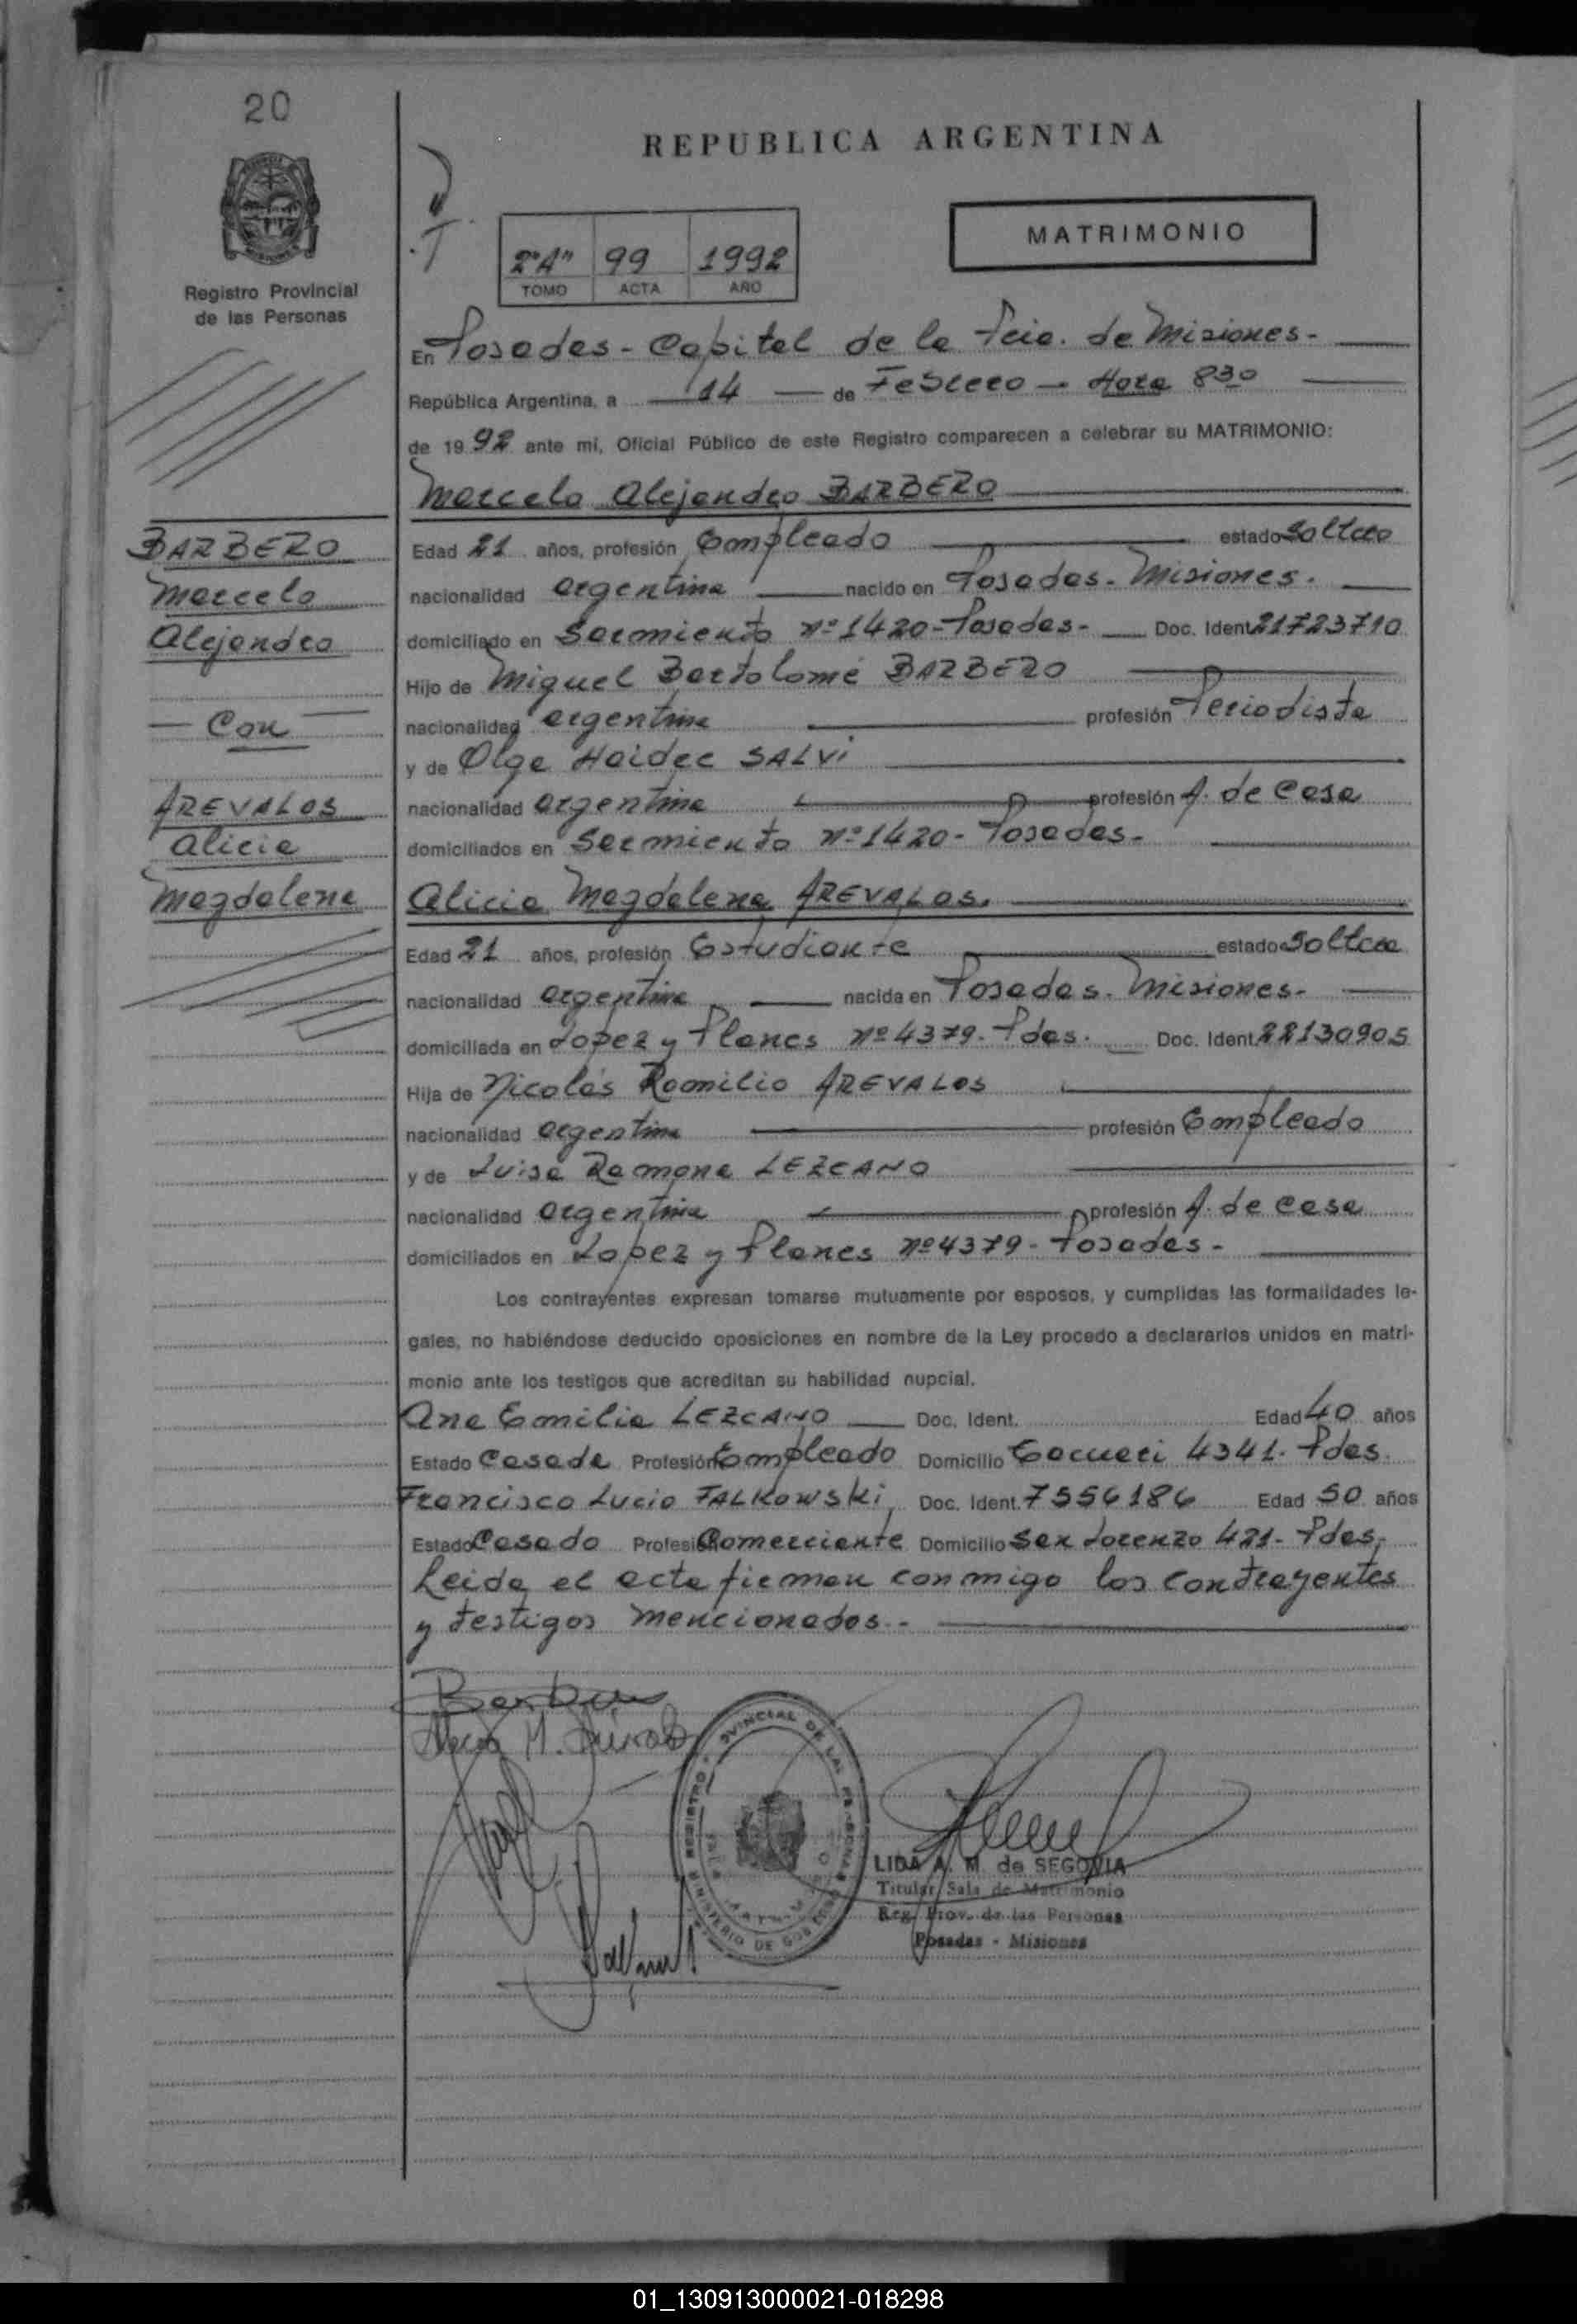 20
REPUBLICA ARGENTINA
MATRIMONIO
2"A" 99 1992
TOMO ACTA AÑO
Registro Provincial
de las Personas
En Posadas - Capital de la Pcia. de Misiones.-
República Argentina, a 14 de Febrero - Hora 830
de 1992 ante mi, Oficial Público de este Registro comparecen a celebrar su MATRIMONIO:
Marcelo Alejandro BARBERO
BARBERO
Marcelo
Alejandro
Con
AREVALOS
Alicia
Magdalena
Edad 21 años, profesión Empleado estado Soltero
nacionalidad argentina nacido en Posadas - Misiones.
domiciliado en Sarmiento Nº 1420 - Posadas - Doc. Ident 21723710
Hijo de Miguel Bartolomé BARBERO
nacionalidad argentina profesión Periodista
y de Olga Haidee SALVI
nacionalidad argentina profesión A. de Casa
domiciliados en Sarmiento Nº 1420 - Posadas.
Alicia Magdalena AREVALOS.
Edad 21 años, profesión Estudiante estado Soltera
nacionalidad argentina nacida en Posadas. Misiones.
domiciliada en Lopez y Planes Nº 4379. Pdas. Doc. Ident. 22130905
Hija de Nicolás Romilio AREVALOS
nacionalidad argentina profesión Empleado
y de Luisa Ramona LEZCANO
nacionalidad argentina profesión A. de casa
domiciliados en Lopez y Planes Nº 4379 - Posadas -
Los contrayentes expresan tomarse mutuamente por esposos, y cumplidas las formalidades le-
gales, no habiéndose deducido oposiciones en nombre de la Ley procedo a declararlos unidos en matri-
monio ante los testigos que acreditan su habilidad nupcial.
Ana Emilia LEZCANO Doc. Ident. Edad 40 años
Estado Casada Profesión Empleado Domicilio 4341. Pdas.
Francisco Lucio FALKOWSKI Doc. Ident. 7556186 Edad 50 años
Estado Casado Profesión Comerciante Domicilio San Lorenzo 421 - Pdas.
Leida el acta firman conmigo los contrayentes
y testigos mencionados.-
LIDA A. M. de SEGOVIA
Titular Sala de Matrimonio
Reg. Prov. de las Personas
Posadas - Misiones
01_130913000021-018298